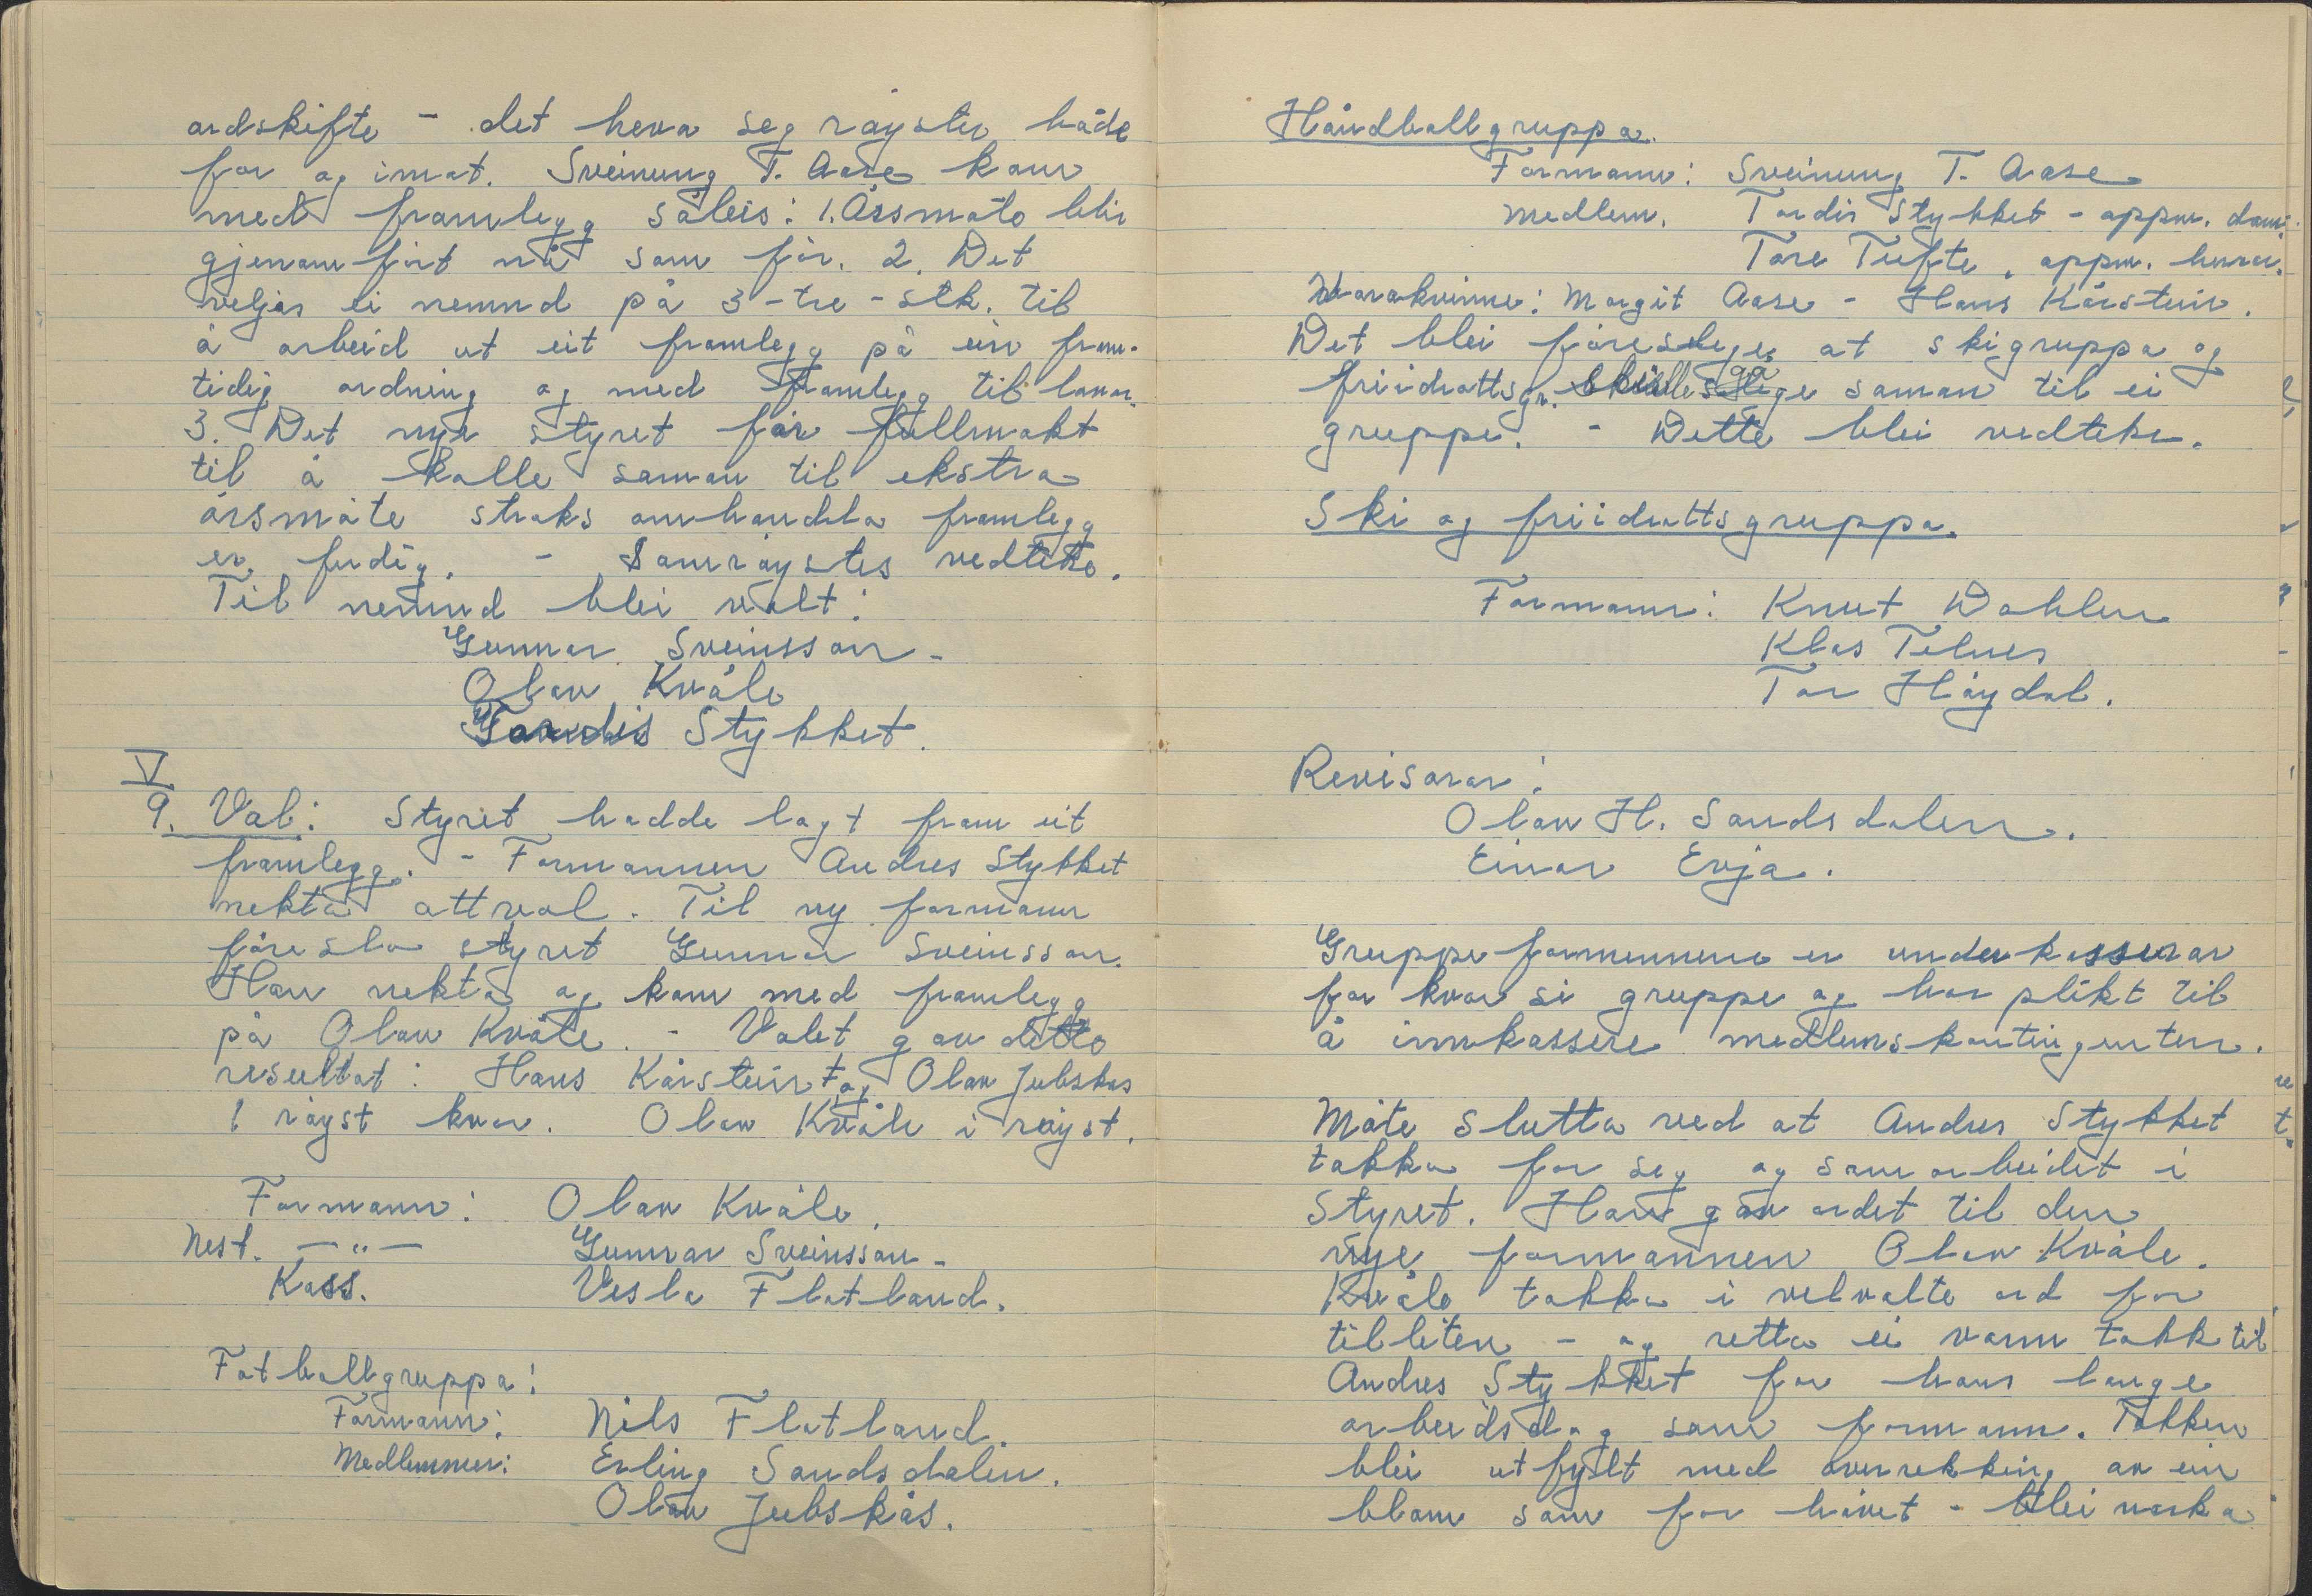 ordskifte - det heva seg røyster både
for og imot. Sveinung T. Aase kom
med framlegg såleis: 1. Årsmøte blir
gjenomført nå som før. 2. Det
veljes ei nemnd på 3 - tre - stk. til
å arbeid ut eit framlegg på ein fram-
tidig ordning og med framlegg til lovar.
3. Det nye styret får fullmakt
til å kalle saman til ekstra
årsmøte straks omhandla framlegg
er ferdig. - Samrøystes vedteke.
Til nemnd blei valt:
Gunnar Sveinsson -
Olav Kvåle
Tordis Stykket.
V
9. Val: Styret hadde lagt fram eit
framlegg. - Formannen Andres Stykket
nekta attval. Til ny formann
føreslo styret Gunnar Sveinsson.
Han nekta og kom med framlegg
på Olav Kvåle. - Valet gav dette
resultat: Hans Kårstein og Olav Julskås
1 røyst kvar. Olav Kvåle i røyst.
Formann: Olav Kvåle.
Nest. - " - Gunnar Sveinsson -
Kass. Vesla Flatland.
Fotballgruppa:
Formann: Nils Flatland.
Medlemmer: Erling Sandsdalen.
Olav Julskås.
Håndballgruppa.
Formann: Sveinung T. Aase
Medlem. Tordis Stykket - oppm. dam.
Tore Tufte, oppm. herrer.
Varakvinne: Margit Aase - Hans Kårstein.
Det blei føreslege at skigruppa og
friidrottsgr. gå saman til ei
gruppe. - Dette blei vedteke.
Ski og friidrottsgruppa.
Formann: Knut Dahlen
Klas Telnes
Tor Høydal.
Revisorar:
Olav H. Sandsdalen.
Einar Evja.
Gruppeformennene er underkasserar
for kvar si gruppe og har plikt til
å innkassere medlemskontingenten.
Møte slutta ved at Andres Stykket
takka for seg og samarbeidet i
Styret. Han gav ordet til den
nye formannen Olav Kvåle.
Kvåle takka i velvalte ord for
tilliten - og retta ei varm takk til
Andres Stykket for hans lange
arbeidsdag som formann. Takken
blei utfylt med overrekking av ein
blom som for høvet - blei raska